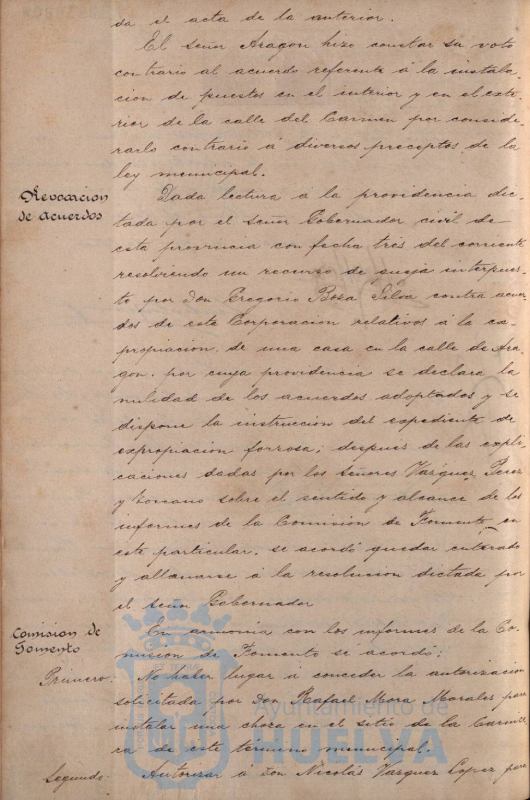 da el acta de la anterior.
El señor Aragon hizo constar su voto
contrario al acuerdo referente á la instala-
cion de puestos en el interior y en el exte-
rior de la calle del Carmen por conside-
rarlo contrario á diversos preceptos de la
ley municipal.
Revocacion
de acuerdos
Dada lectura á la providencia dic-
tada por el señor Gobernador civil de
esta provincia con fecha tres del corriente
resolviendo un recurso de queja interpues-
to por Don Gregorio Bosa Silva contra acuer
dos de esta Corporacion relativos á la ex-
propiacion de una casa en la calle de Ara
gon, por cuya providencia se declara la
nulidad de los acuerdos adoptados y se
dispone la instruccion del expediente de
expropiacion forzosa; despues de las expli
caciones dadas por los señores Vazquez Perez
y sobre el sentido y alcance de los
informes de la Comision de Fomento en
este particular, se acordó quedar enterado
y allanarse á la resolucion dictada por
el señor Gobernador
Comision de
Fomento
En armonia con los informes de la Co
mision de Fomento se acordó:
Primero.
No haber lugar á conceder la autorizacion
solicitada por Don Rafael Mora Morales para
instalar una choza en el sitio de la
de este término municipal.
Segundo.
Autorizar á Don Nicolás Vazquez Lopez para
Ayuntamiento de
HUELVA